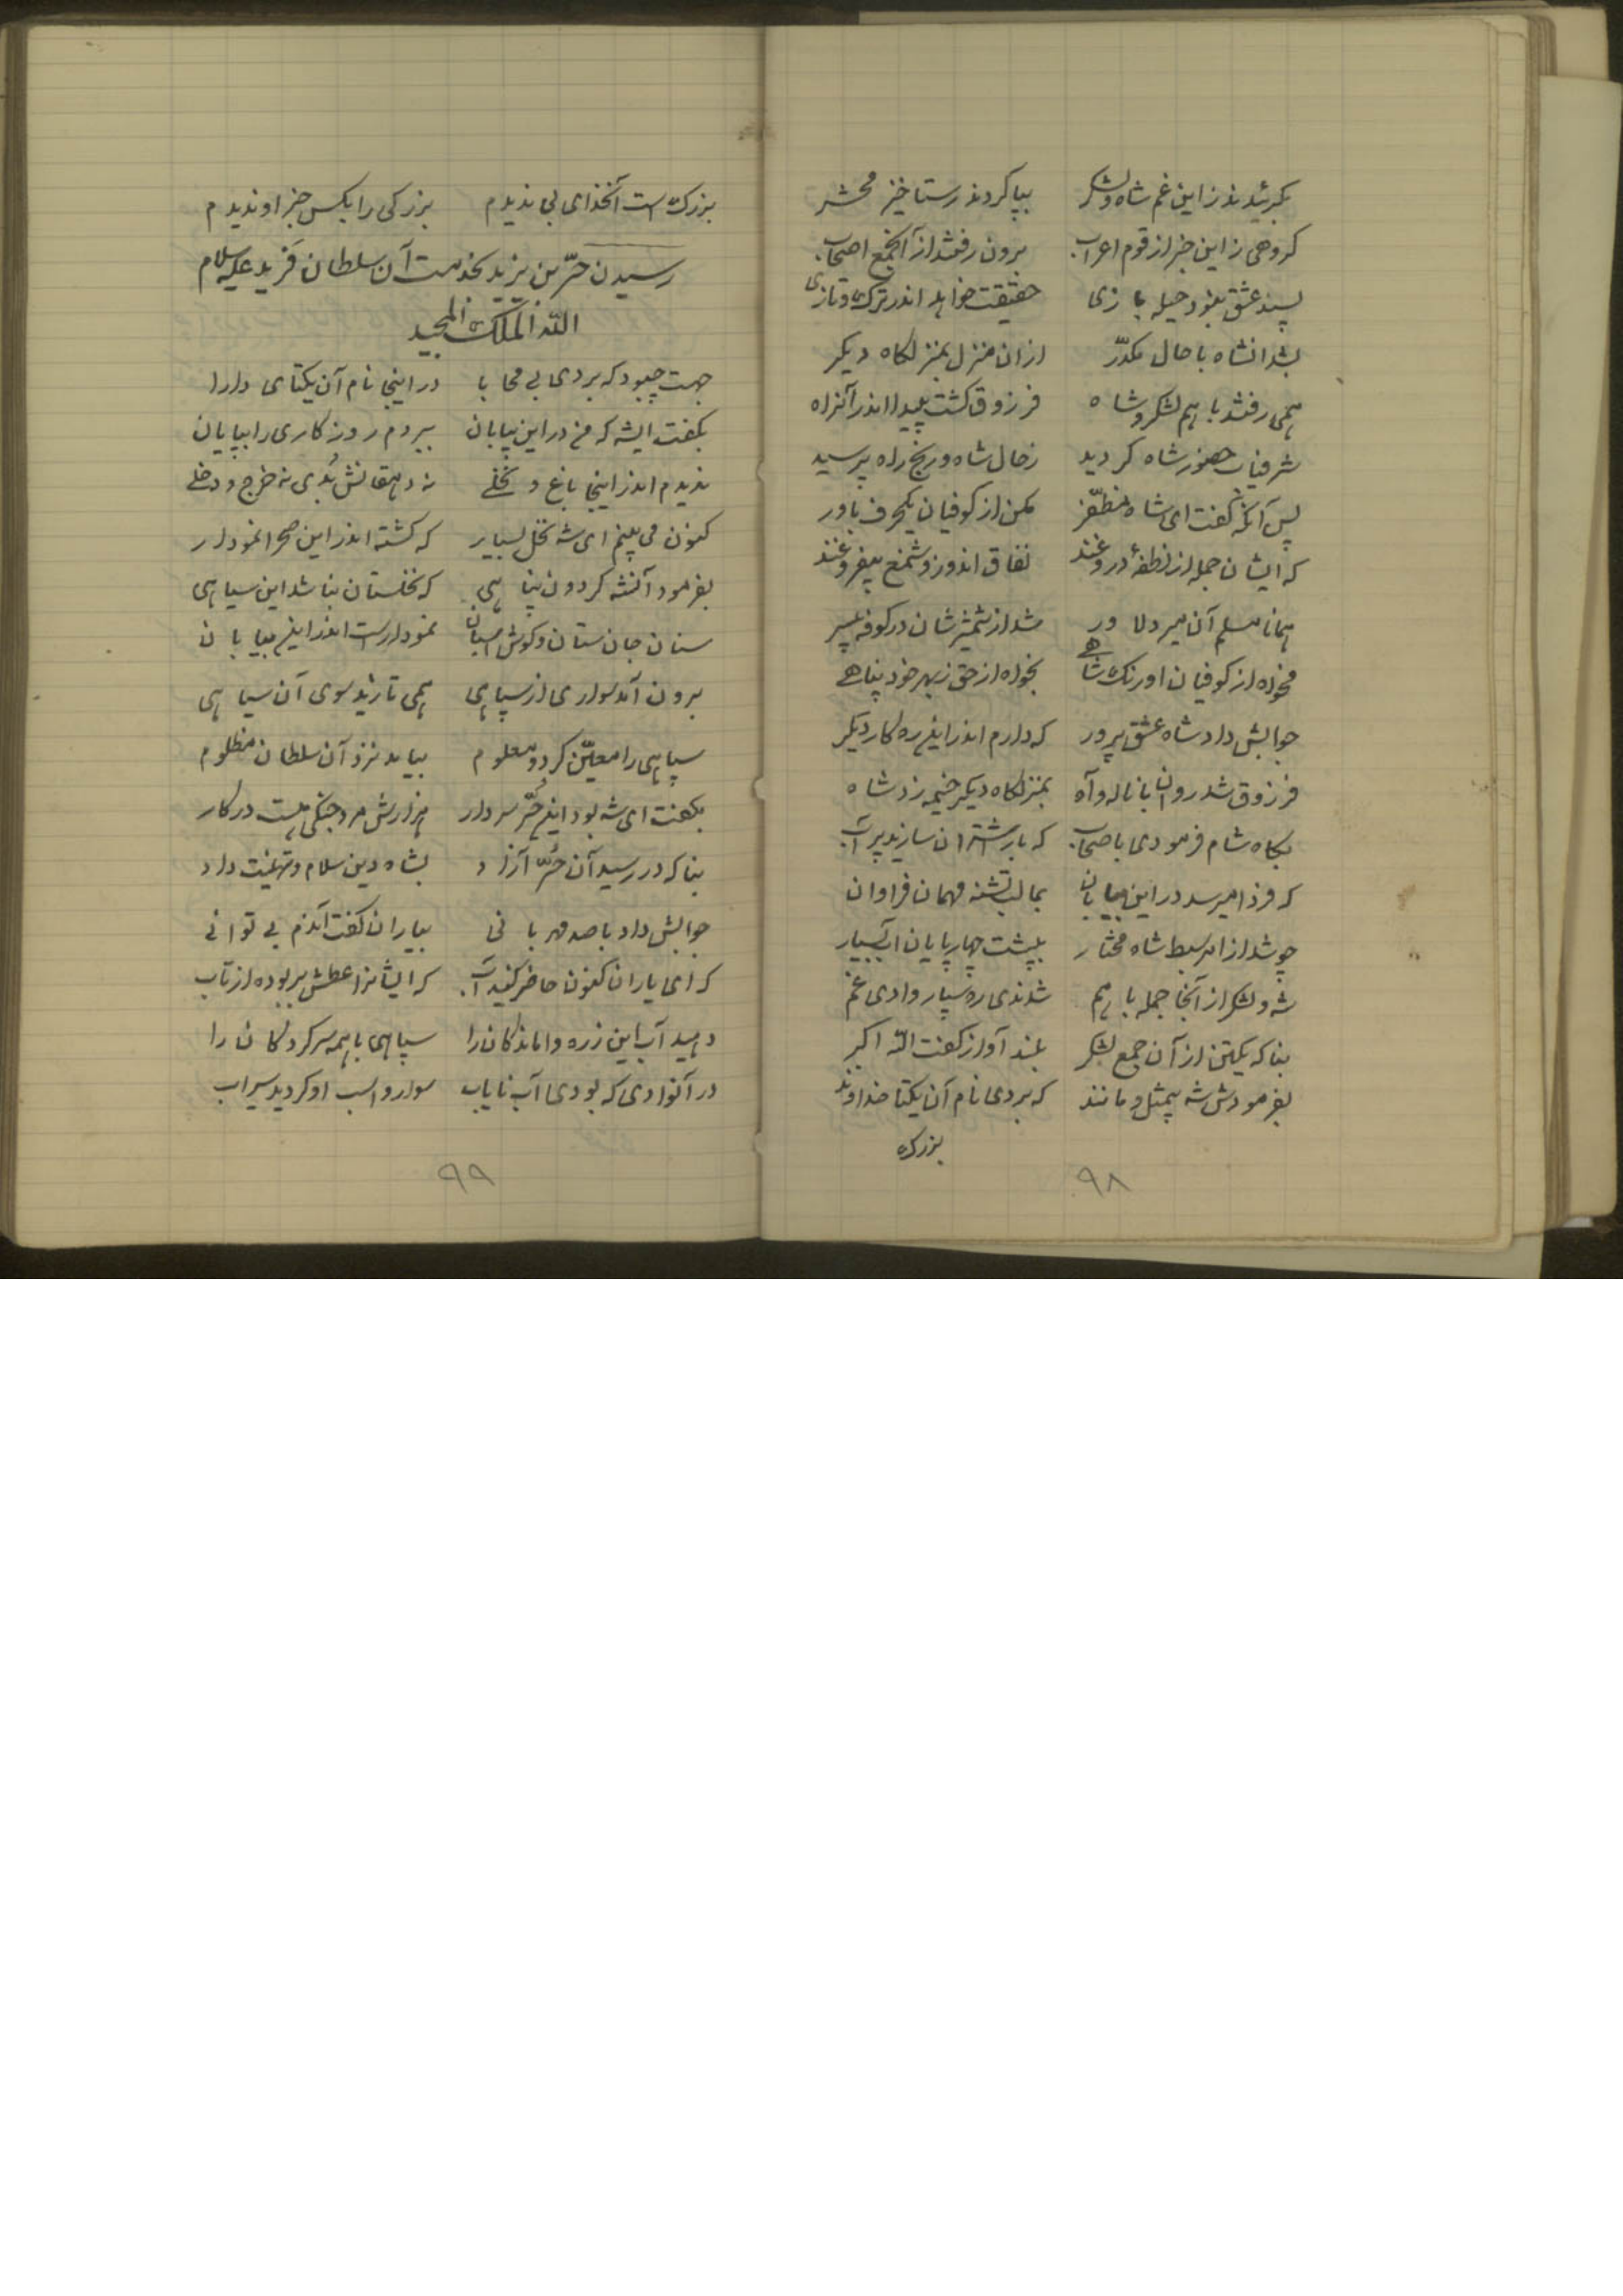 بگرئیدند زاین غم شاه و لشکر بپا کردند رستاخیز محشر
گروهی زاین خبر از قوم اعراب برون رفتند از آنجمع اصحاب
پسند عشق نبود حیله بازی حقیقت خواهد اندر ترک و تازی
بشد آنشاه با حال مکدّر از آن منزل بمنزلگاه دیگر
همی رفتند با هم لشکر و شاه فرزوق گشت پیدا اندر آنراه
شرفیاب حضور شاه گردید زحال شاه و رنج راه پرسید
پس آنگه گفت ای شاه مظفّر مکن از کوفیان یکحرف باور
که ایشان جمله از نطفهٔ دروغند نفاق اندوز و شمع بیفروغند
همانا مسلم آن میر دلاور شد از شمشیرشان در کوفه بیسر
مخواه از کوفیان اورنگ شاهی بخواه از حق زبهر خود پناهی
جوابش داد شاه عشق پرور که دارم اندر اینره کار دیگر
فرزوق شد روان با ناله و آه بمنزلگاه دیگر خیمه زد شاه
بگاه شام فرمودی باصحاب که بار شتران سازید پر آب
که فردا میرسد در این بیابان بما لبتشنه مهمان فراوان
چو شد از امر سبط شاه مختار بپشت چارپایان آب بسیار
شه و لشکر از آنجا جمله با هم شدندی ره سپار وادی غم
بناگه یکتن از آن جمع لشکر بلند آواز گفت الله اکبر
بفرمودش شه بیمثل و مانند که بردی نام آن یکتا خداوند
بزرگ
٩٨
بزرگ است آنخدای بی ندیدم بزرگی را بکس جز او ندیدم
رسیدن حرّ بن یزید بخدمت آن سلطان فرید علیه سلام
الله الملک المجید
جهت چبود که بردی بی محابا در اینجا نام آن یکتای دارا
بگفت ایشه که من در این بیابان ببردم روزگاری را بپایان
ندیدم اندر اینجا باغ و نخلی نه دهقانش بُدی نه خرج و دخلی
کنون می بینم ای شه نخل بسیار که گشته اندر این صحرا نمودار
بفرمود آنشه گردون پناهی که نخلستان نباشد این سیاهی
سنان جان ستان و گوش اسبان نمودار است اندر این بیابان
برون آمد سواری از سپاهی همی تازید سوی آن سیاهی
سپاهی را معیّن کرد و معلوم بیامد نزد آن سلطان مظلوم
بگفت ای شه بود این حُرّ سردار هزارش مرد جنگی هست در کار
بناگه در رسید آن حُرّ آزاد بشاه دین سلام و تهنیت داد
جوابش داد با صد مهربانی بیاران گفت آندم بی توانی
که ای یاران کنون حاضر کنید آب که ایشانرا عطش بربوده از تاب
دهید آب این زره واماندگان را سپاهی با همه سرکردگان را
در آنوادی که بودی آب نایاب سوار و اسب او گردید سیراب
٩٩